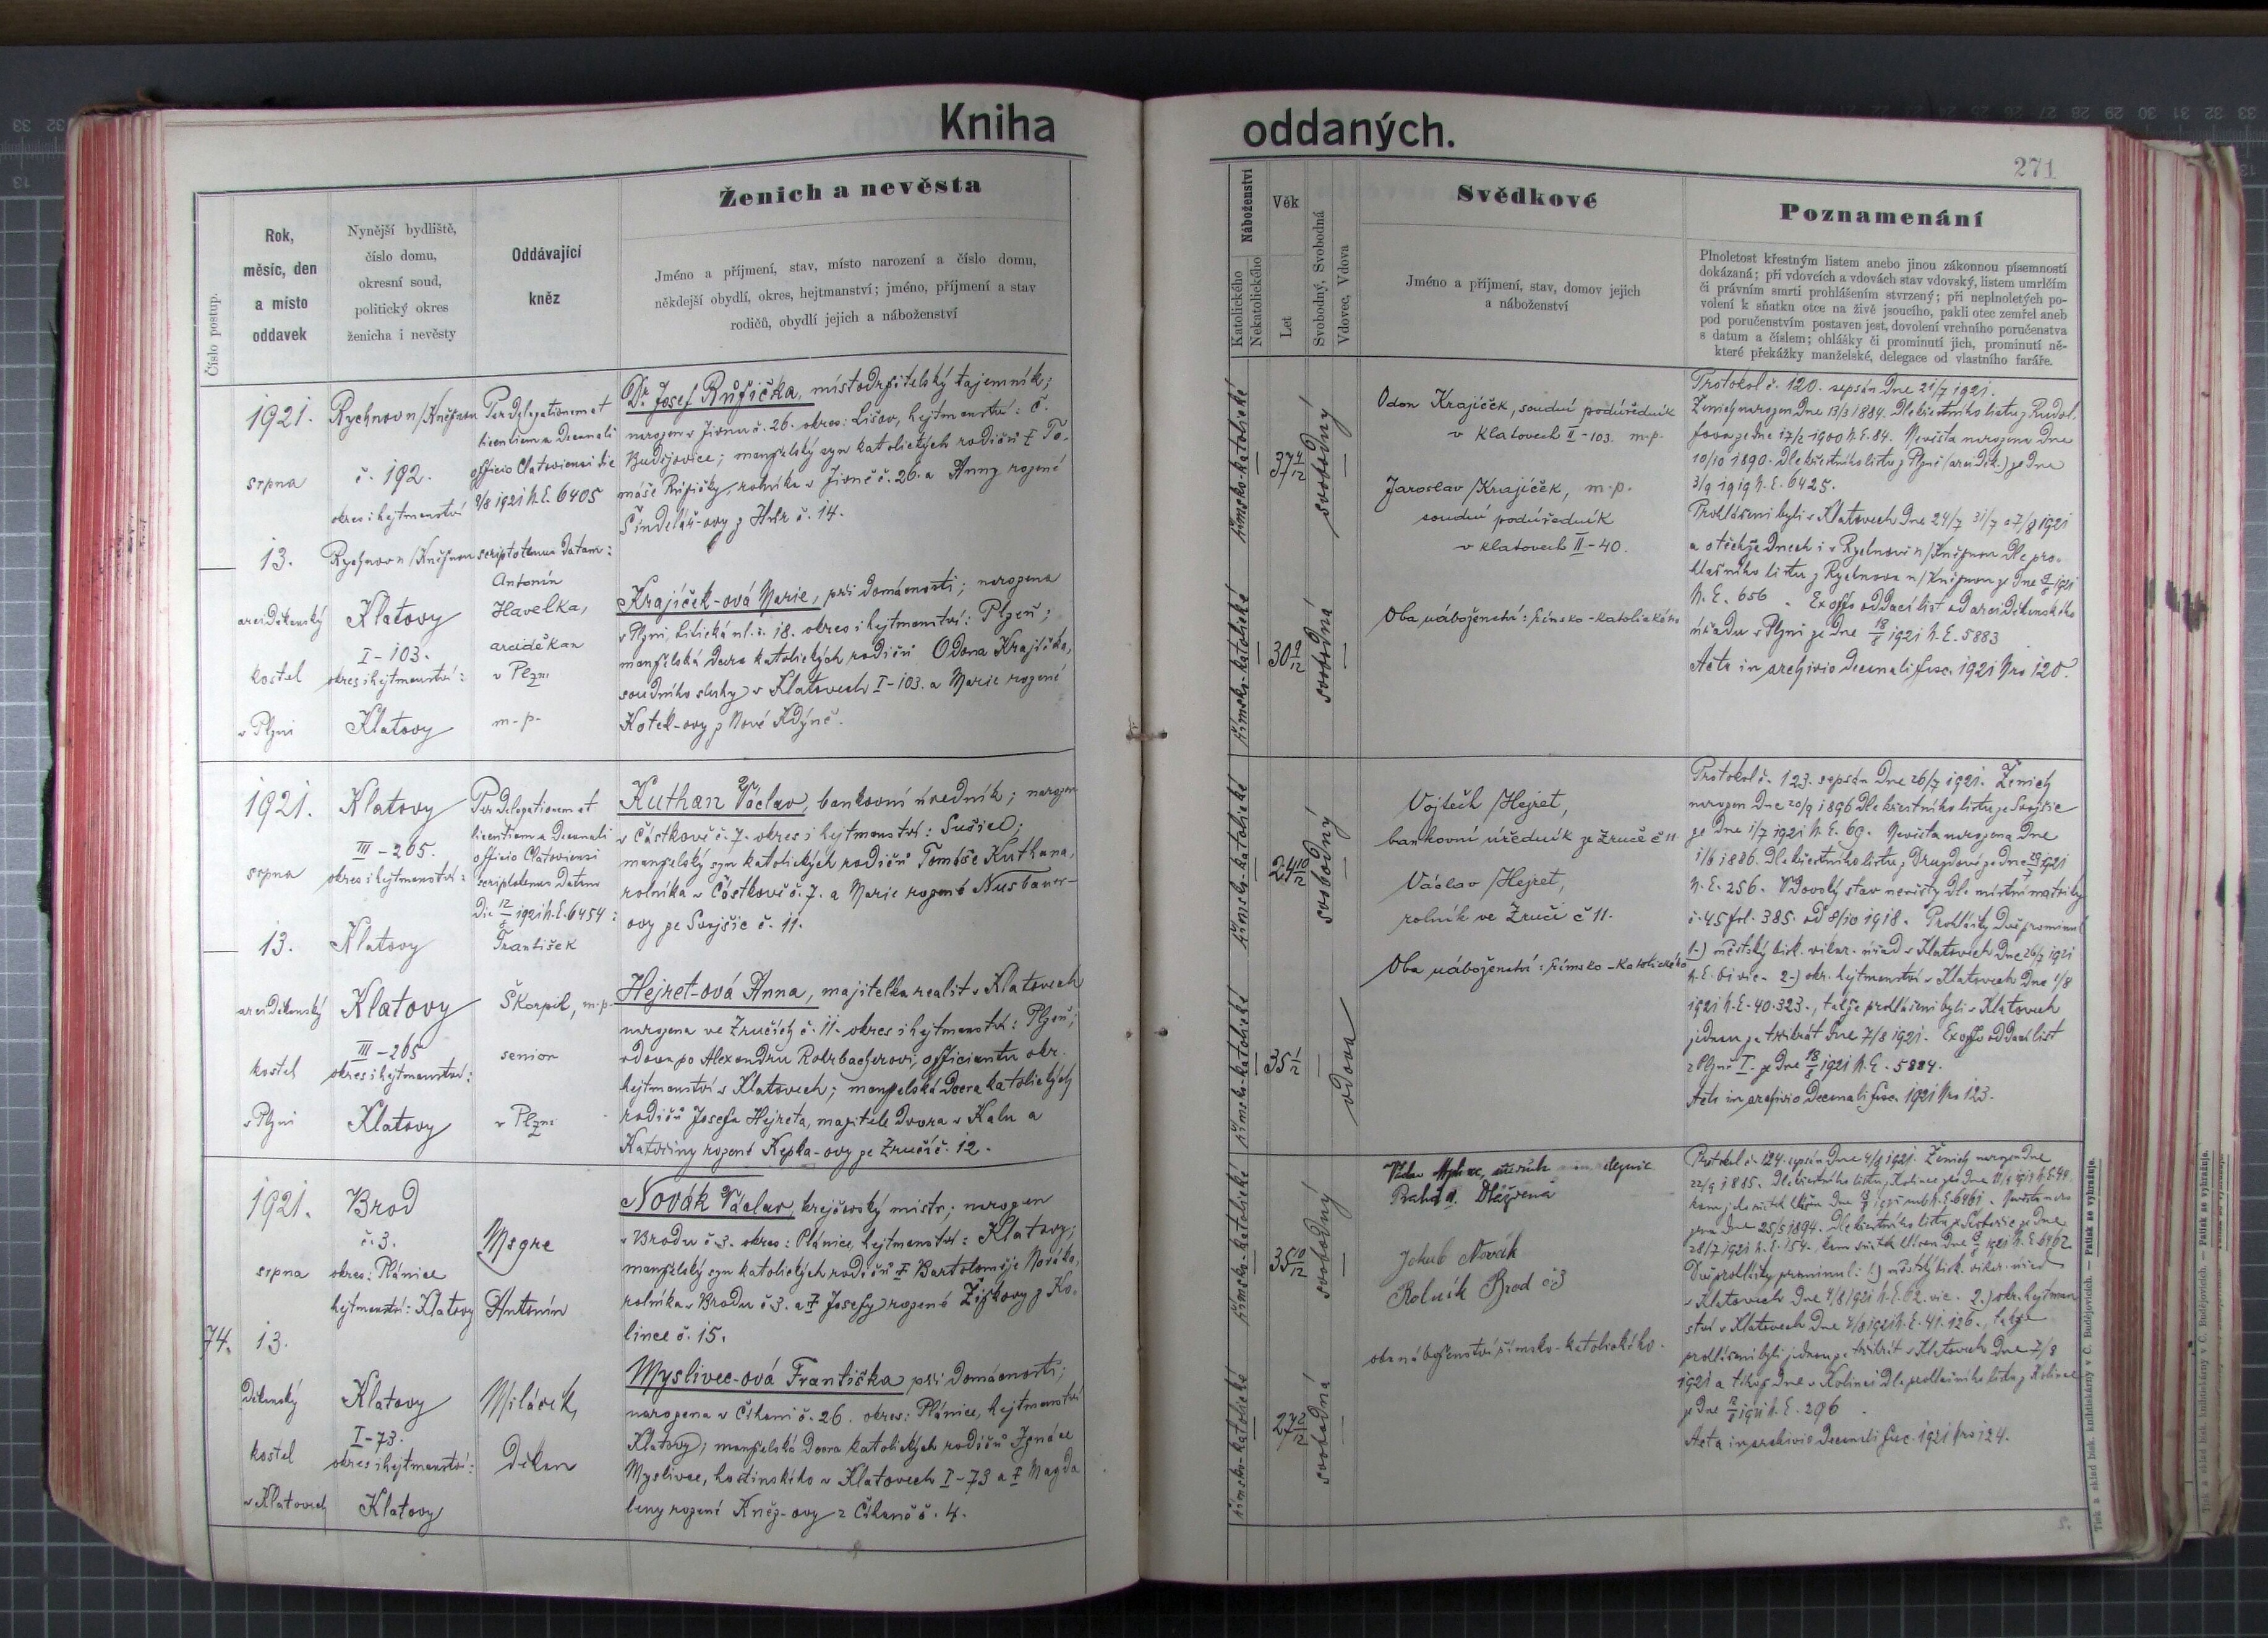 Kniha
oddaných.
271
Číslo postup.
Rok,
měsíc, den
a místo
oddavek
Nynější bydliště,
číslo domu,
okresní soud,
politický okres
ženicha i nevěsty
Oddávající
kněz
Ženich a nevěsta
Jméno a příjmení, stav, místo narození a číslo domu,
někdejší obydlí, okres, hejtmanství; jméno, příjmení a stav
rodičů, obydlí jejich a náboženství
Náboženství
Katolického
Nekatolického
Věk
Let
Svobodný, Svobodná
Vdovec, Vdova
Svědkové
Jméno a příjmení, stav, domov jejich
a náboženství
Poznamenání
Plnoletost křestným listem anebo jinou zákonnou písemností
dokázaná; při vdovcích a vdovách stav vdovský, listem umrlčím
či právním smrti prohlášením stvrzený; při neplnoletých po-
volení k sňatku otce na živě jsoucího, pakli otec zemřel aneb
pod poručenstvím postaven jest, dovolení vrchního poručenstva
s datum a číslem; ohlášky či prominutí jich, prominutí ně-
které překážky manželské, delegace od vlastního faráře.
1921.
srpna
13.
arciděkanský
kostel
v Plzni
Rychnov n/Kněžnou
č. 192.
okres i hejtmanství
Rychnov n/Kněžnou
Klatovy
I-103.
okres i hejtmanství:
Klatovy
Per delegationem et
licentiam a Decanali
officio Clatoviensi die
2/8 1921 N.E. 6405
scriptotenus datam:
Antonín
Havelka,
arciděkan
v Plzni
m-p-
Dr. Josef Růžička, místodržitelský tajemník;
narozen v Jivnu č. 26. okres: Lišov, hejtmanství: Č.
Budějovice; manželský syn katolických rodičů † To-
máše Růžičky, rolníka v Jivně č. 26. a Anny rozené
Šindelář-ovy z Hůr č. 14.
Krajíček-ová Marie, při domácnosti; narozena
v Plzni, Litická ul. č. 18. okres i hejtmanství: Plzeň;
manželská dcera katolických rodičů Odona Krajíčka,
soudního sluhy v Klatovech I-103. a Marie rozené
Kotek-ovy z Nové Kdýně.
římsko-katolické
37 4/12
svobodný
římsko-katolické
30 9/12
svobodná
Odon Krajíček, soudní podúředník
v Klatovech II-103. m-p-
Jaroslav Krajíček, m-p-
soudní podúředník
v Klatovech II-40.
Oba náboženství: římsko-katolického
Protokol č. 120. sepsán dne 21/7 1921.
Ženich narozen dne 13/3 1884. Dle křestního listu z Rudol-
fova ze dne 17/2 1900 N.E. 84. Nevěsta narozena dne
10/10 1890. Dle křestního listu z Plzně (arciděk.) ze dne
3/9 1919 N.E. 6425.
Prohlášeni byli v Klatovech dne 24/7 31/7 a 7/8 1921
a v těchže dnech i v Rychnově n/Kněžnou dle pro-
hlašního listu z Rychnova n/Kněžnou ze dne 1921
N.E. 656. Exoffo oddací list od arciděkanského
úřadu v Plzni ze dne 18/8 1921 N.E. 5883
Acta in archivio decanali fasc. 1921 Nro 120.
1921.
srpna
13.
arciděkanský
kostel
v Plzni
Klatovy
III-265.
okres i hejtmanství:
Klatovy
Klatovy
III-265
okres i hejtmanství:
Klatovy
Per delegationem et
licentiam a Decanali
officio Clatoviensi
scriptotenus datam
die 12/8 1921 N.E. 6454:
František
Škorpil, m-p-
senior
v Plzni
Kuthan Václav, bankovní úředník; narozen
v Částkově č. 7. okres i hejtmanství: Sušice;
manželský syn katolických rodičů Tomáše Kuthana,
rolníka v Částkově č. 7. a Marie rozené Nusbauer-
ovy ze Svojšic č. 11.
Hejret-ová Anna, majitelka realit v Klatovech
narozena ve Zručích č. 11. okres i hejtmanství: Plzeň;
vdova po Alexandru Rohrbacherovi, officiantu okr.
hejtmanství v Klatovech; manželská dcera katolických
rodičů Josefa Hejreta, majitele dvora v Kalu a
Kateřiny rozené Kepka-ovy ze Zručí č. 12.
římsko-katolické
24 10/12
svobodný
římsko-katolické
35 1/12
vdova
Vojtěch Hejret,
bankovní úředník ze Zruče č 11.
Václav Hejret,
rolník ve Zruči č 11.
Oba náboženství: římsko-katolického
Protokol č. 123. sepsán dne 26/7 1921. Ženich
narozen dne 20/9 1896 dle křestního listu ze Svojšic
ze dne 1/7 1921 N.E. 69. Nevěsta narozena dne
1/6 1886. Dle křestního listu z Druzdové ze dne 1921
N.E. 256. Vdovský stav nevěsty dle místní matriky
č. 45 fol. 385. od 8/10 1918. Prohlášky dvě prominul
1-) městský bisk. vikar. úřad v Klatovech dne 26/7 1921
N.E. 61 vic- 2-) okr. hejtmanství v Klatovech dne 1/8
1921 N.E. 40.323., takže prohlášeni byli v Klatovech
jednou za třikrát dne 7/8 1921. Exoffo oddací list
z Plzně I- ze dne 18/8 1921 N.E. 5884.
Acta in archivio decanali fasc. 1921 Nro 123.
74.
1921.
srpna
13.
Děkanský
kostel
v Klatovech
Brod
č. 3.
okres: Plánice
hejtmanství: Klatovy
Klatovy
I-73.
okres i hejtmanství:
Klatovy
Msgre
Antonín
Miláček,
děkan
Novák Václav, krejčovský mistr; narozen
v Brodu č. 3. okres: Plánice, hejtmanství: Klatovy;
manželský syn katolických rodičů † Bartoloměje Nováka,
rolníka v Brodu č. 3. a † Josefy rozené Žižkovy z Ko-
lince č. 15.
Myslivec-ová Františka při domácnosti;
narozena v Číhani č. 26. okres: Plánice, hejtmanství
Klatovy; manželská dcera katolických rodičů Ignáce
Myslivce, hostinského v Klatovech I-73 a † Magda
leny rozené Kněz-ovy z Číhaně č. 4.
římsko-katolické
35 10/12
svobodný
římsko-katolické
27 2/12
svobodná
Praha II. Dlážděná
Jakub Novák
Rolník Brod čís 3
oba náboženství římsko-katolického.
Protokol č. 124. sepsán dne 4/8 1921. Ženich narozen dne
22/9 1885. Dle křestního listu z Kolince ze dne
Nevěsta naro
zena dne 25/5 1894. Dle křestního listu ze dne
28/7 1921 N.E. 154.
Dvě prohlášky prominul: 1.) městský bisk. vikar. úřad
v Klatovech dne 4/8 1921 N.E. 62. vic- 2.) okr. hejtman
ství v Klatovech dne 1921 N.E. 41.126., takže
prohlášeni byli jednou za třikrát v Klatovech dne 7/8
1921 a téhož dne v Kolinci dle prohlašního listu z Kolince
ze dne 12/8 1921 N.E. 296
Acta in archivio decanali fasc. 1921 Nro 124.
Tisk a sklad bisk. knihtiskárny v Č. Budějovicích. — Patisk se vyhražuje.